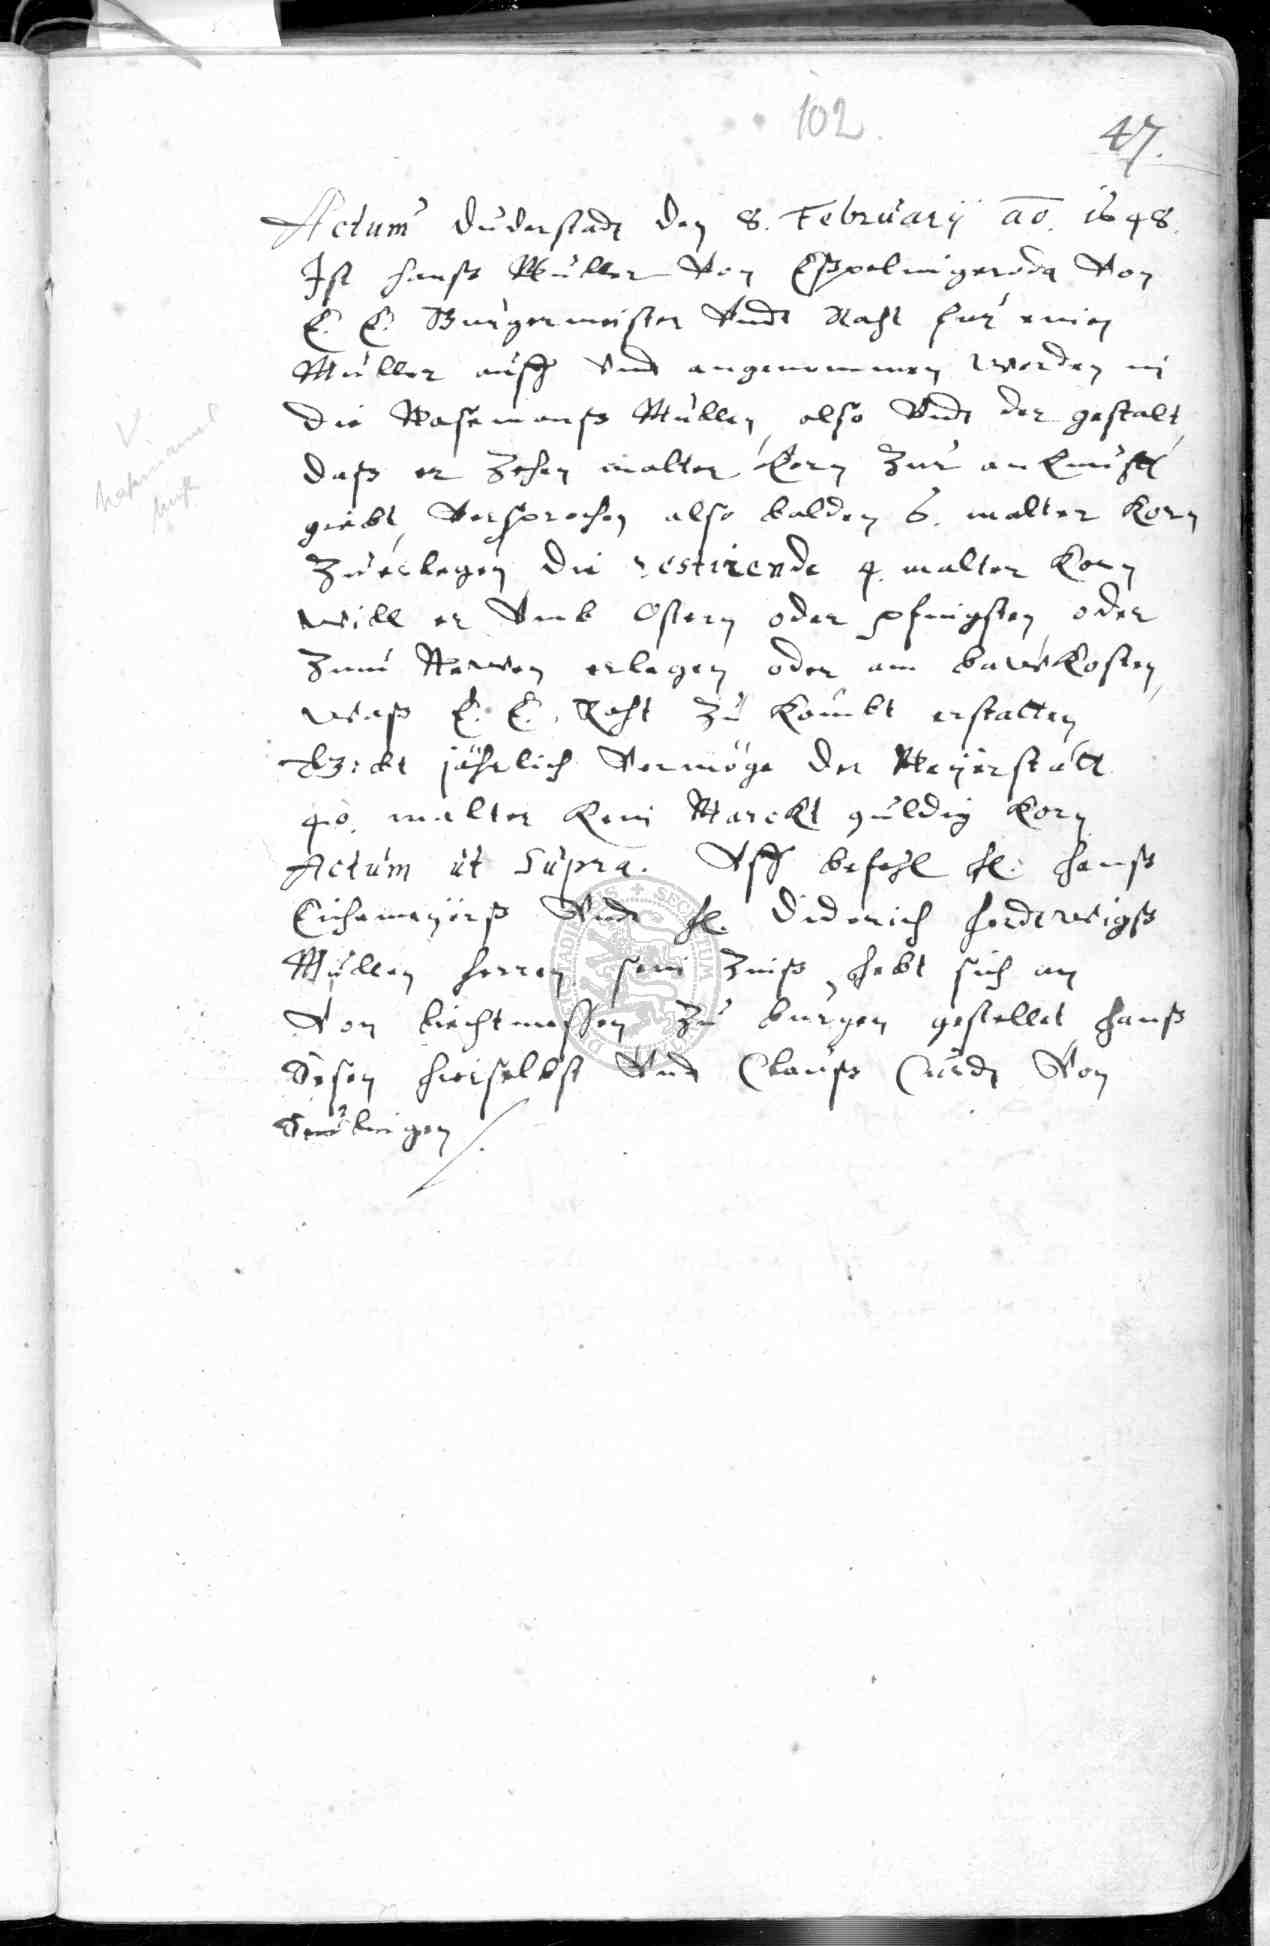 102.
47.
Actum Duderstadt den 8. February ao. 1648.
Ist Hanß Müller Von Eßpelingeroda Von
E. E. Bürgermeister Vndt Raht für einen
Müller auff Vnd angenommen worden in
die Müllen, also Vndt der gestalt,
daß er zehen malter Korn zur ankunfft
giebt, Versprochen also balden 6. malter Korn
zu erlegen die restirende 4. malter Korn
will er Vmb Ostern oder pfingsten oder
zum Newen erlegen oder am bawkosten,
waß E. E. Raht zu kömbt erstatten
jährlich Vermöge der Meyerstatt
40. malter Rein Marckt güldig Korn
Actum ut Supra. Vff befehl H. Hanß
Eichemeyerß Vndt H. Diderich Herdtwigß
Müllen Herren sein Zinß, hebt sich an
Von liechtmessen zu bürgen gestellet Hanß
Desen hierselbst Vndt Clauß Curdt Von
Seulingen